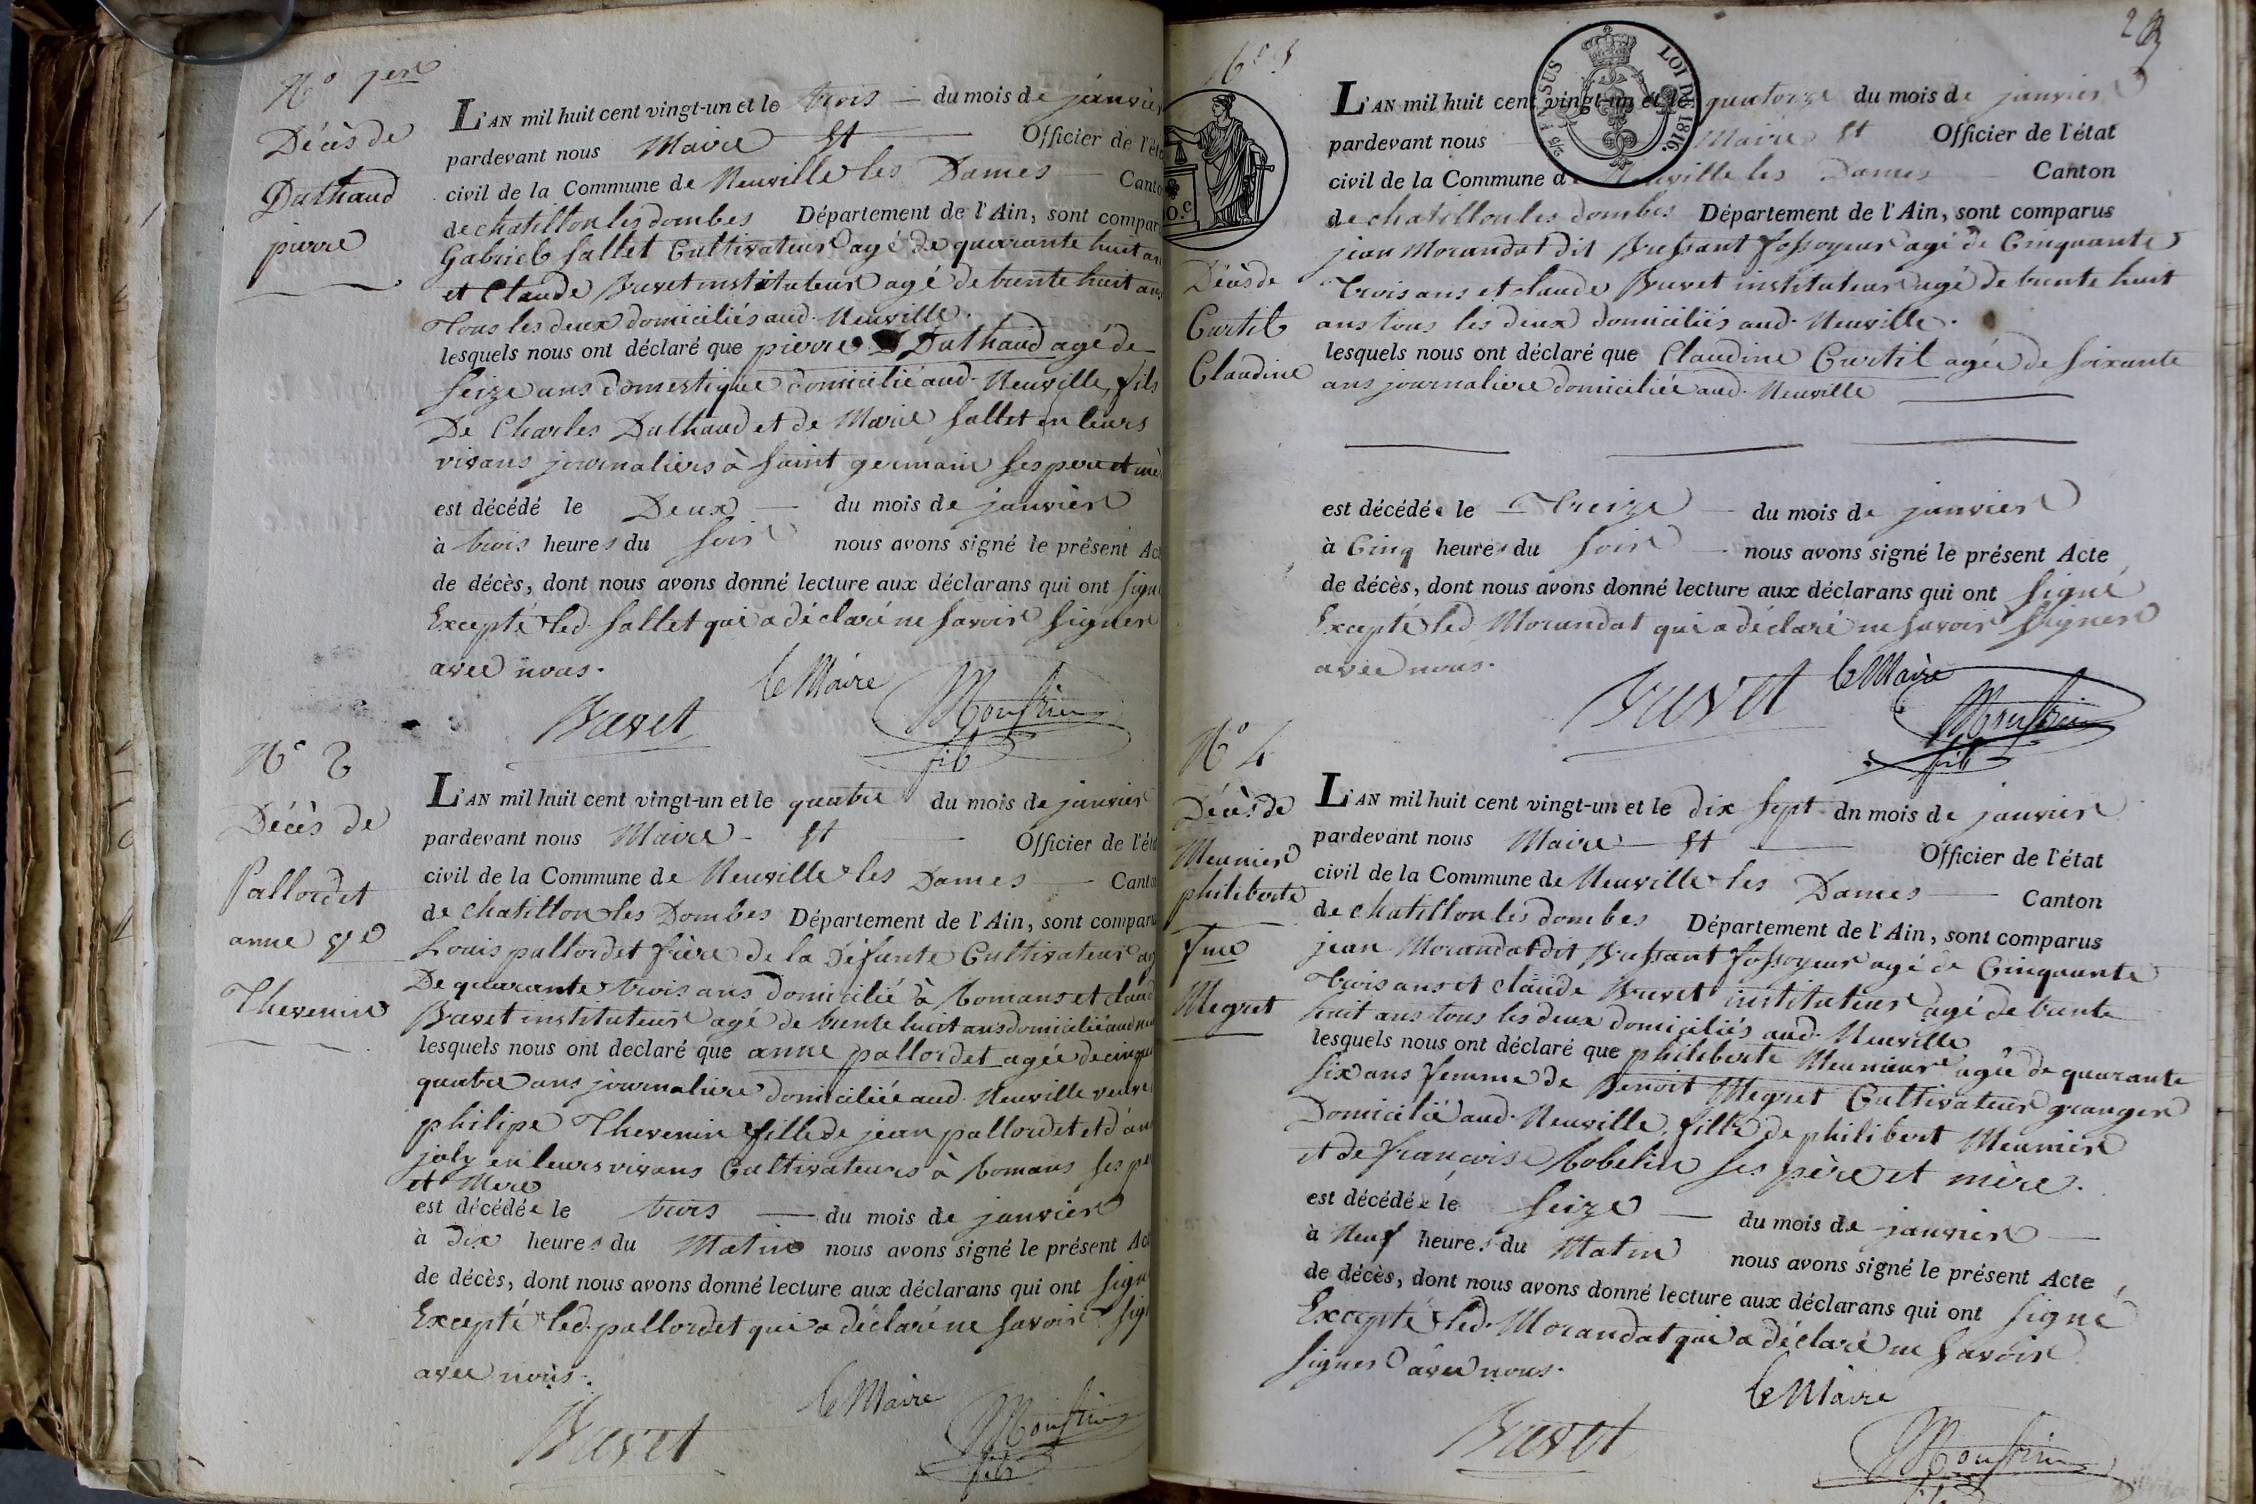 N° 1er
Décès de
Duthaud
pierre
L'AN mil huit cent vingt-un et le trois du mois de janvier
pardevant nous Maire et Officier de l'éta
civil de la Commune de Neuville les Dames Canto
de chatillon les dombes Département de l'Ain, sont compar
Gabriel sallet Cultivateur agé de quarante huit an
et Claude Buvet instituteur agé de trente huit ans
Tous les deux domiciliés aud. Neuville.
lesquels nous ont déclaré que pierre Duthaud agé de
seize ans domestique domicilié aud. Neuville, fils
De Charles Duthaud et de Marie sallet en leurs
vivans journaliers à saint germain ses pere et mè
est décédé le Deux du mois de janvier
à trois heures du soir nous avons signé le présent Act
de décès, dont nous avons donné lecture aux déclarans qui ont signé
Excepté led. sallet qui a déclaré ne savoir signer
avec nous.
le Maire
Buvet
fils
N° 2
Décès de
Pallordet
anne ve
Thevenin
L'AN mil huit cent vingt-un et le quatre du mois de janvier
pardevant nous Maire et Officier de l'éta
civil de la Commune de Neuville les Dames Canto
de chatillon les Dombes Département de l'Ain, sont comparu
Louis pallordet frère de la défunte Cultivateur ag
De quarante trois ans domicilié à Romans et claud
Buvet instituteur agé de trente huit ans domicilié aud neu
lesquels nous ont declaré que anne pallordet agée de cinqua
quatre ans journaliere domiciliée aud. Neuville veuve
philipe Thevenin fille de jean pallordet et d'ann
joly en leurs vivans Cultivateurs à Romans ses pe
et Mere
est décédée le trois du mois de janvier
à dix heures du Matin nous avons signé le présent Act
de décès, dont nous avons donné lecture aux déclarans qui ont signé
Excepté led. pallordet qui a déclaré ne savoir sig
avec nous.
le Maire
Buvet
fils
23
N° 3
LOI DE 1816.
Décès de
Curtil
Claudine
L'AN mil huit cent vingt-un et le quatorze du mois de janvier
pardevant nous Maire et Officier de l'état
civil de la Commune de Neuville les Dames Canton
de chatillon les dombes Département de l'Ain, sont comparus
jean Morandat dit Bressant fossoyeur agé de Cinquante
Trois ans et claude Buvet instituteur agé de trente huit
ans tous les deux domiciliés aud. Neuville.
lesquels nous ont déclaré que Claudine Curtil agée de soixante
ans journaliere domiciliée aud. Neuville
est décédée le Treize du mois de janvier
à Cinq heures du soir nous avons signé le présent Acte
de décès, dont nous avons donné lecture aux déclarans qui ont signé
Excepté led Morandat qui a déclaré ne savoir signer
avec nous.
le Maire
Buvet
fils
N° 4
Décès de
Meunier
philiberte
fme
Megret
L'AN mil huit cent vingt-un et le dix sept dn mois de janvier
pardevant nous Maire et Officier de l'état
civil de la Commune de Neuville les Dames Canton
de chatillon les dombes Département de l'Ain, sont comparus
jean Morandat dit Bressant fossoyeur agé de Cinquante
Trois ans et claude Buvet instituteur agé de trente
huit ans tous les deux domiciliés aud. Neuville
lesquels nous ont déclaré que philiberte Meunier agée de quarante
six ans femme de Benoit Megret Cultivateur granger
Domicilié aud. Neuville, fille de philibert Meunier
et de françoise Robelin ses père et mère.
est décédée le seize du mois de janvier
à Neuf heures du Matin nous avons signé le présent Acte
de décès, dont nous avons donné lecture aux déclarans qui ont signé
Excepté led. Morandat qui a déclaré ne savoir
signer avec nous.
le Maire
Buvet